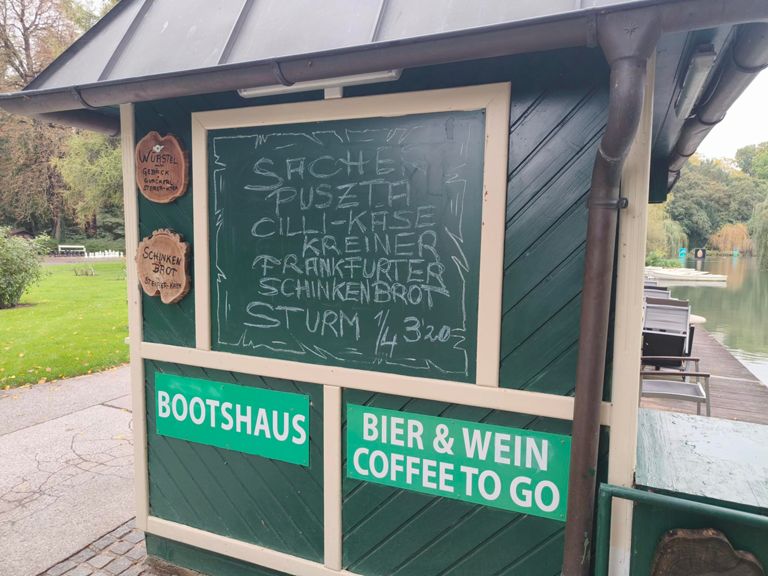 WÜRSTEL
GEBÄCK
SCHINKEN
BROT
SACHER
PUSZTA
CILLI-KÄSE
KREINER
FRANKFURTER
SCHINKENBROT
STURM 1/4 3'20
BOOTSHAUS
BIER & WEIN
COFFEE TO GO